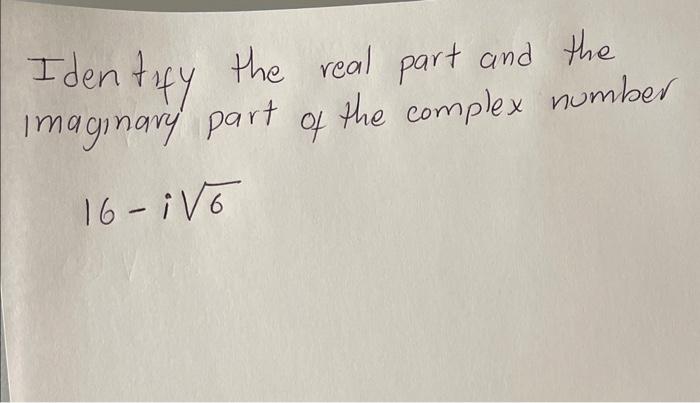 Identify the real part and the
imaginary part of the complex number
16 - i√6